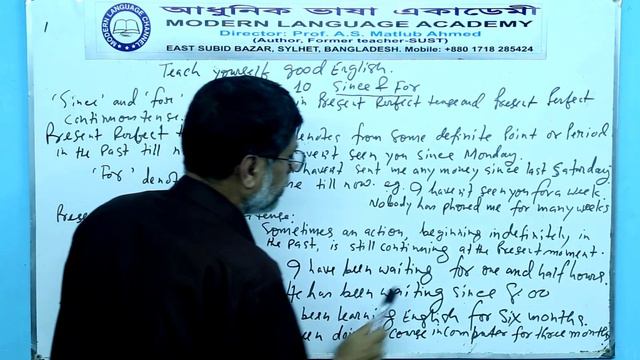 আধুনিক ভাষা একাডেমী
MODERN LANGUAGE ACADEMY
Director: Prof. A.S. Matlub Ahmed
(Author, Former teacher-SUST)
EAST SUBID BAZAR, SYLHET, BANGLADESH. Mobile: +880 1718 285424
1
Teach yourself good English.
10 Since & For
'Since' and 'for' in Present Perfect tense and Present Perfect
continuous tense.
Present Perfect t denotes from some definite Point or Period
in the Past till n haven't seen you since Monday.
haven't sent me any money since last Saturday
'For' deno me till now. eg. I haven't seen you for a week.
Nobody has phoned me for many weeks
Prese tense:
Sometimes an action, beginning indefinitely in
the Past, is still continuing at the Present moment.
I have been waiting for one and half hours.
He has been waiting since 8:00
been learning English for six months.
been doi course in computer for three months